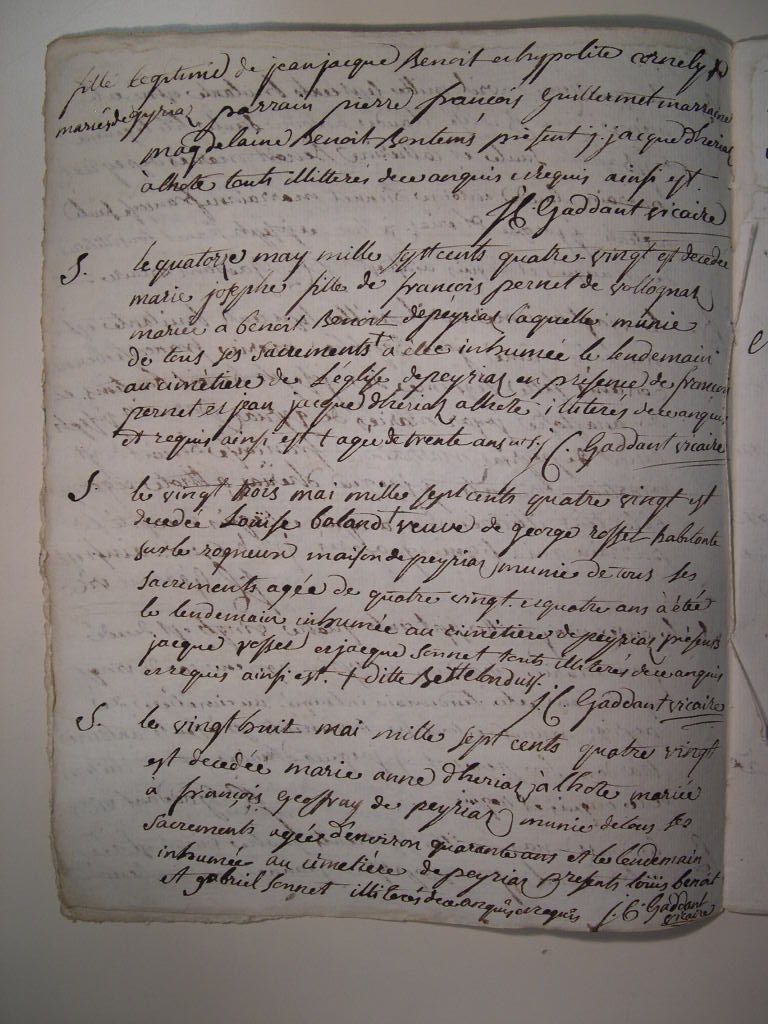 fille legitime de jean jacque Benoit et hypolite cornely +
mariés de peyriaz parrain pierre françois Guillermet marraine
magdelaine Benoit Bontems présent j. jacque dheriaz
à lhote touts illiterés de ce anquis et requis ainsi est.
J C. Gaddant vicaire
S. le quatorze may mille septcents quatre-vingt est decedée
marie josephe fille de françois pernet de vollognaz
mariée a benoit Benoit de peyriaz laquelle munie
de tous ses sacrements + a elle inhumée le lendemain
au cimétiere de L'église de peyriaz en présence de francois
pernet et jean jacque dheriaz alhote illiterés de ce anquis
et requis ainsi est + agée de trente ans J C. Gaddant vicaire
S. le vingt trois mai mille sept cents quatre vingt est
decedée Loüise baland + veuve de george rosset habitante
sur le rogneux maison de peyriaz munie de tous ses
sacrements agée de quatre vingt et quatre ans à été
le lendemain inhumée au cimétiere de peyriaz présents
jacque vosset et jacque sonnet touts illiteres de ce anquis
et requis ainsi est. + ditte
J C. Gaddant vicaire
S. le vingt huit mai mille sept cents quatre vingt
est decedée marie anne dheriaz à lhote mariée
à françois Geoffray de peyriaz munie de tous ses
sacrements agée d'environ quarante ans et le lendemain
inhumée au cimetiére de peyriaz présents loüis benoit
et gabriel sonnet illiterés de ce anquis et requis J. C. Gaddant
vicaire